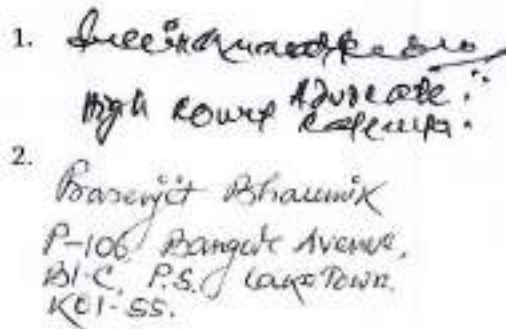 1.
High Court Advocate
Calcutta.
2.
Prasenjit Bhaumik
P-106 Bangur Avenue,
Bl-C, P.S. Lake Town.
Kol-55.